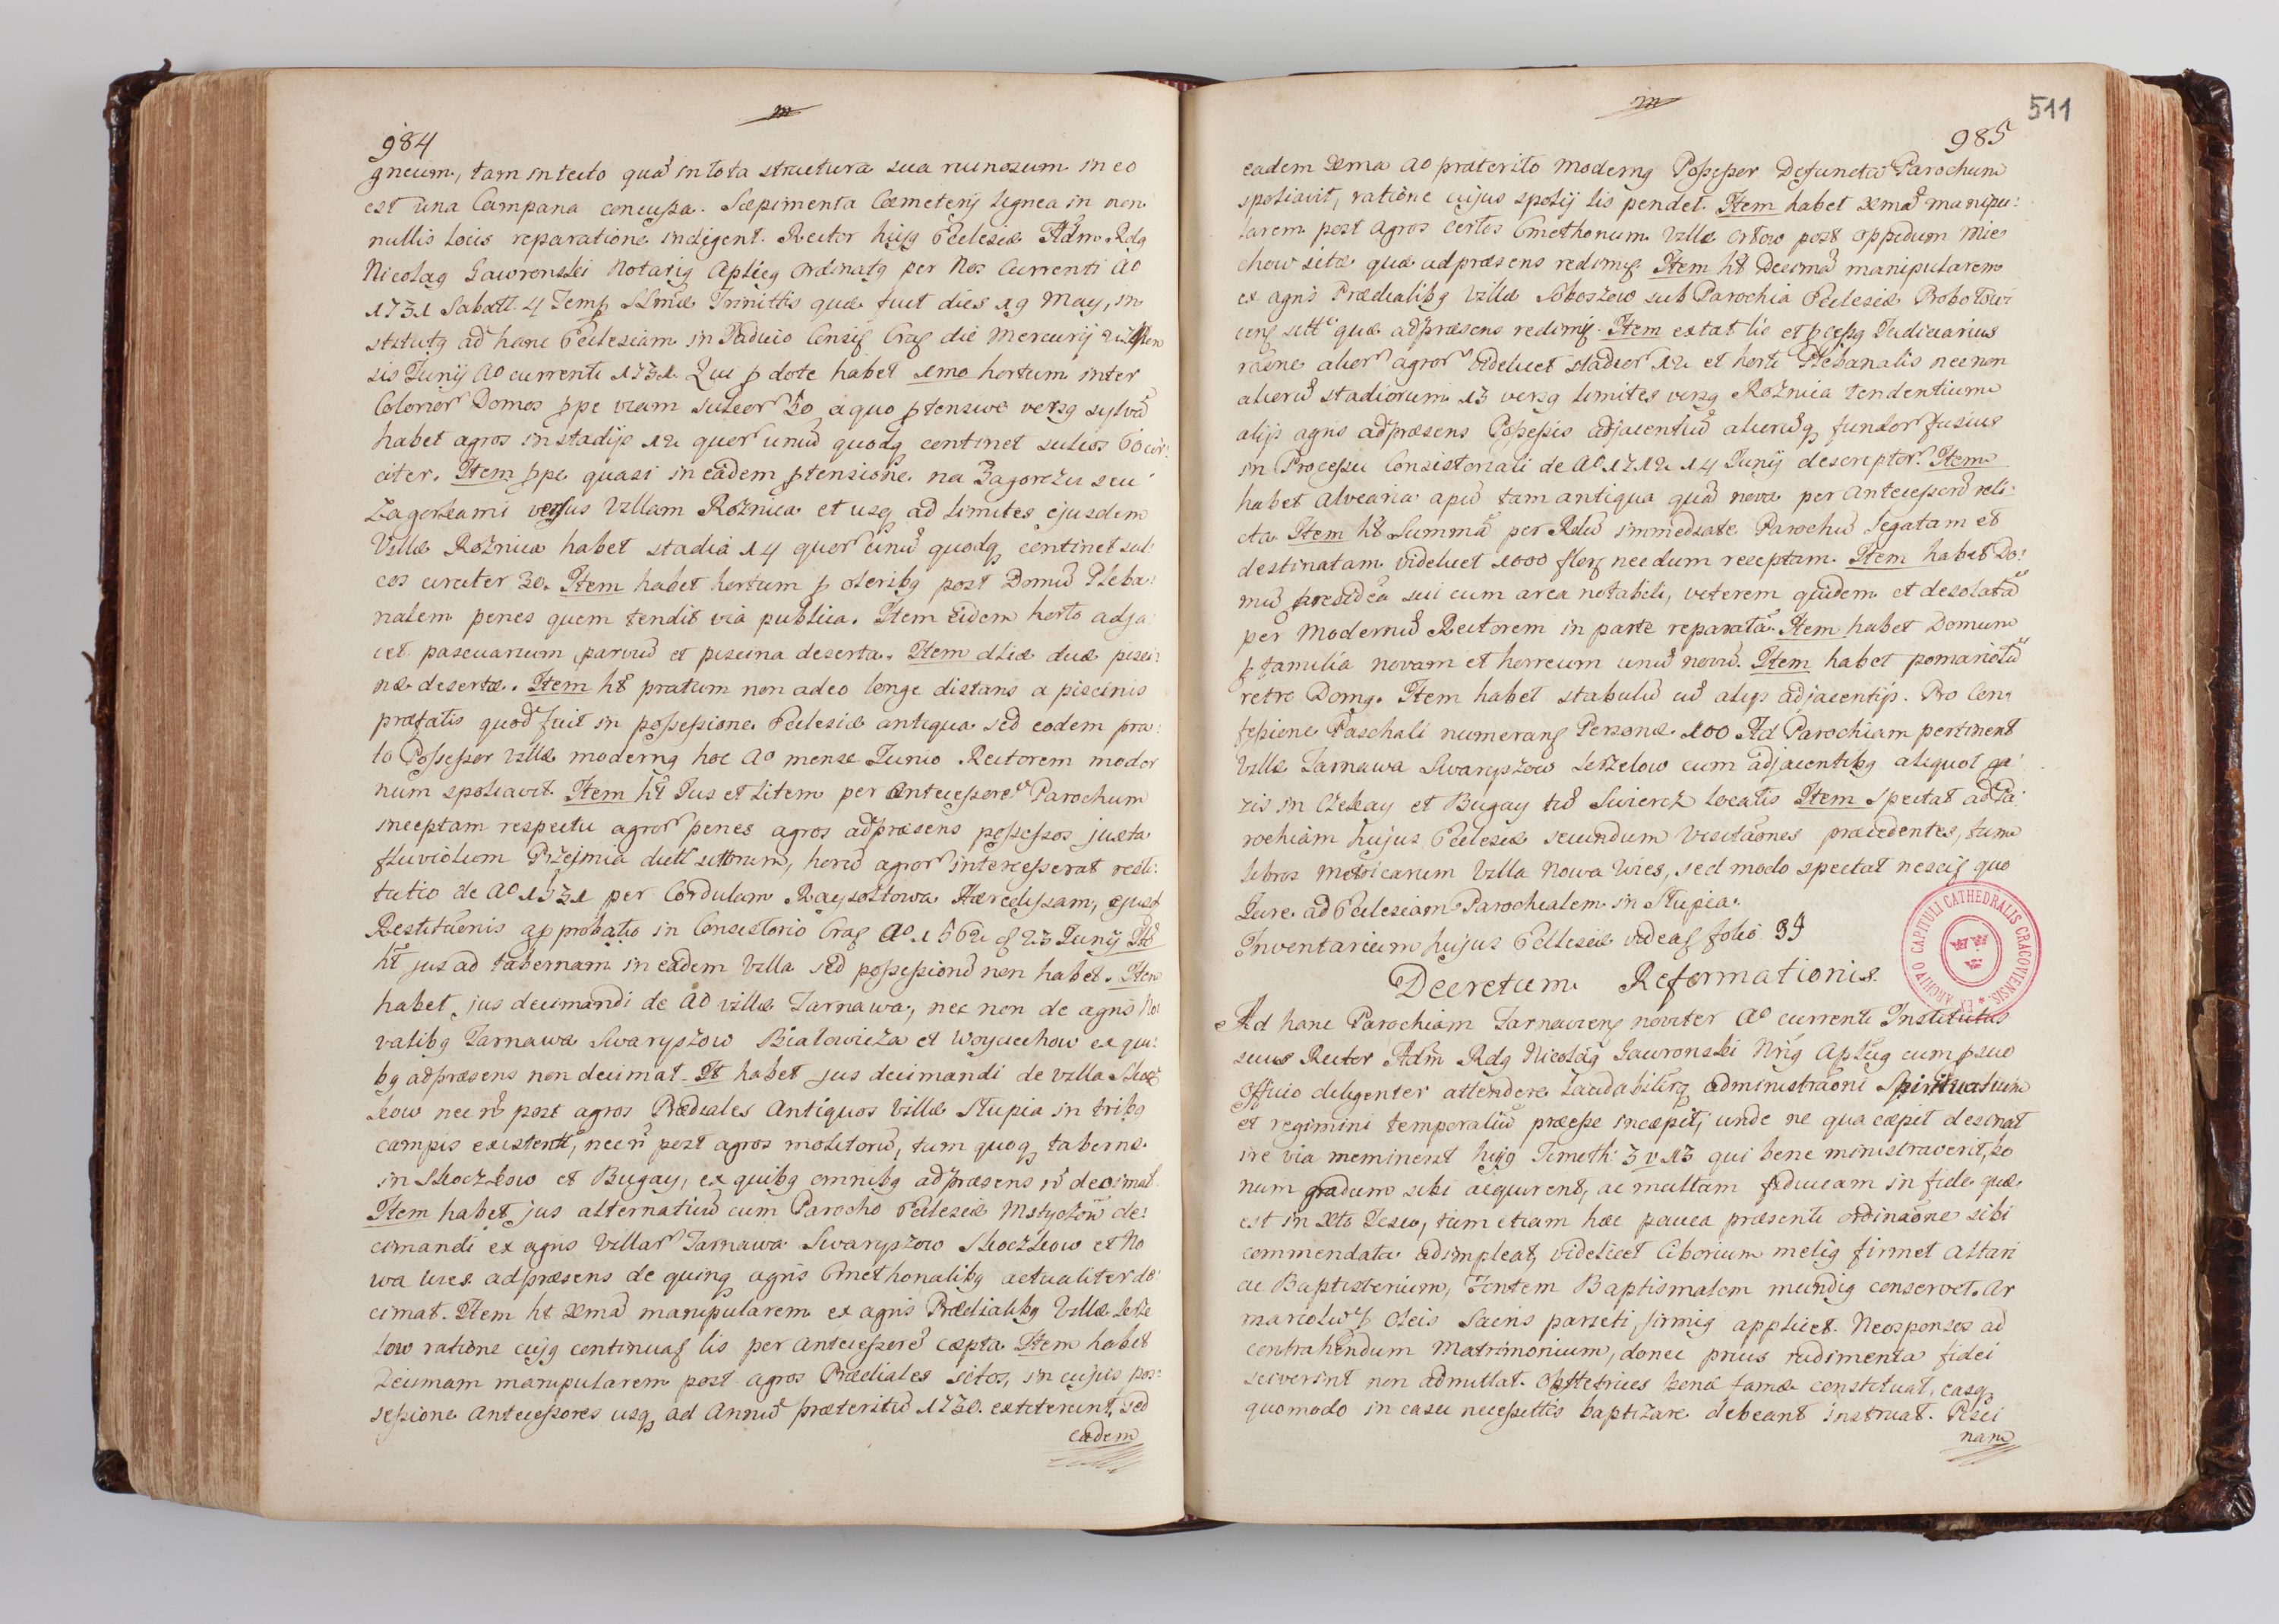 m
984
gneum, tam in tecto quã in tota structura sua ruinosum in eo
est una Campana concussa. Sæpimenta Cæmeterij lignea in non
nullis locis reparatione indigent. Rector hujg Ecclesiæ Adm. Rdg
Nicolag Gawronski Notarig Aplicg Ordinatg per Nos Currenti Ao
1731 Sabatt. 4 Temp SSmæ Trinittis quæ fuit dies 19 May, in
stitutg ad hanc Ecclesiam in Judicio Consis Crac die Mercurij
sis Junij Ao currenti 1731. Qui p dote habet xmo hortum inter
Colonior Domos ppe viam sulcor 50 a quo ptensive versg sylvã
habet agros in stadijs 12 quor unũ quodq continet sulcos 60 cir:
citer. Item ppe quasi in eadem ptensione na Zagorzu seu
Zagorkami versus Villam Roznica et usq ad limites ejusdem
Villæ Roznica habet stadia 14 quor unũ quodq continet sul:
cos circiter 30. Item habet hortum p oleribg post Domũ Pleba:
nalem penes quem tendit via publica. Item eidem horto adja
cet pascuarium parvũ et piscina deserta. Item aliæ duæ pisci:
næ desertæ. Item ht pratum non adeo longe distans a piscinis
præfatis quod fuit in possessione Ecclesiæ antiqua sed eodem pra:
to Possessor Villæ moderng hoc Ao mense Junio Rectorem moder
num spoliavit. Item ht Jus et litem per Antecessorẽ Parochum
inceptam respectu agror penes agros adpræsens possessos juxta
fluviolum Przejmia dictt scttorum, horũ agror intercesserat resti:
tutio de Ao 1531 per Cordulam Raysoltowa Hæredissam, ejusd
Restitũonis approbatio in Consistorio Crac Ao 1562 23 Junij Itẽ
ht jus ad tabernam in eadem Villa sed possessionẽ non habet. Item
habet jus decimandi de Ao villæ Tarnawa, nec non de agris No
valibg Tarnawa Swaryszow Białowieza et Woyciechow ex qui:
bg adpræsens non decimat. It habet jus decimandi de villa Skocz
kow nec ñ post agros Prædiales Antiquos Villæ Stupia in tribg
campis existentẽ, nec ñ post agros molitorũ, tum quoq tabernæ
in Skoczkow et Bugay, ex quibg omnibg adpræsens ñ decimat
Item habet jus alternativũ cum Parocho Ecclesiæ Mstyczoũ de:
cimandi ex agris Villar Tarnawa Swaryszow Skoczkow et No
wa wies adpræsens de quinq agris Cmethonalibg actualiter de
cimat. Item ht xmã manipularem ex agris Prædialibg Villæ Krze
low ratione cujg continuas lis per Antecessorẽ cæpta. Item habet
Decimam manipularem post agros Prædiales sitos, in cujus pos:
sessione Antecessores usq ad Annũ præteritũ 1730. extiterunt, sed
eadem
m
511
985
eadem xma Ao præterito Moderng Possessor Defunctũ Parochum
spoliavit, ratione cujus spolij lis pendet. Item habet xmã manipu:
larem post Agros Certos Cmethonum Villæ Ortow post oppidum Mie
chow sitæ quæ adpræsens redimis. Item ht Decimã manipularem
ex agris Prædialibg Villæ Sboszow sub Parochia Ecclesiæ Probołowi
cens sctt quæ adpræsens redimis. Item extat lis et pcessg Judiciarius
raõne alior agror videlicet stadior 12 et horti Plebanalis nec non
aliorũ stadiorum 13 versg limites versg Roznica tendentium
alijs agris adpræsens Possessis adjacentiũ aliorũq fundor fusius
in Processu Consistoriali de Ao 1712 14 Junij descriptor. Item
habet Alvearia apũ tam antiqua quã nova per Antecessorẽ reli:
cta Item ht Summã per Rdũ immediate Parochũ Legatam et
destinatam videlicet 1000 flor necdum receptam. Item habet Do:
mũ presidẽa sui cum area notabili, veterem quidem et desolatã
per Modernũ Rectorem in parte reparatã. Item habet Domum
p familia novam et horreum unũ novũ. Item habet pomariolũ
retro Domg. Item habet stabulũ cũ alijs adjacentijs. Pro Con:
fessione Paschali numerans Personæ 100 Ad Parochiam pertinent
Villæ Tarnawa Swaryszow Krzelow cum adjacentibg aliquot ga:
zis in Czekay et Bugay tũ Swiercz locatis Item Spectat ad Pa:
rochiam hujus Ecclesiæ secundum Visitãones præcedentes, tum
Libros Metricarum Villa Nowa Wies, sed modo spectat nescis quo
Jure ad Ecclesiam Parochialem in Stupia.
Inventarium hujus Ecclesiæ videas folio 39
Decretum Reformationis.
Ad hanc Parochiam Tarnaviens noviter Ao currenti Institutus
suus Rector Adm Rdg Nicolãg Gawronski Nrig Aplicg cum p suo
Officio diligenter attendere Laudabiliterq administraõni Spiritualium
et regimini temporaliũ præesse incæpit, unde ne qua cæpit desinat
ire via meminerit hujg Timoth: 3 v 13 qui bene ministraverit, bo
num gradum sibi acquirent, ac multam fiduciam in fide quæ
est in Xto Jesu, tum etiam hæc pauca præsenti ordinãone sibi
commendata adimpleat, videlicet Ciborium melig firmet Altari
ac Baptisterium, Fontem Baptismalem mundig conservet. Ar
mariolũ p Oleis Sacris parieti firmig applicet. Neosponsos ad
contrahendum Matrimonium, donec prius rudimenta fidei
sciverint non admittat. Obstetrices bonæ famæ constituat, easq
quomodo in casu necessittis baptizare debeant instruat. Pisci
nam
EX ARCHIVO CAPITULI CATHEDRALIS CRACOVIENSIS